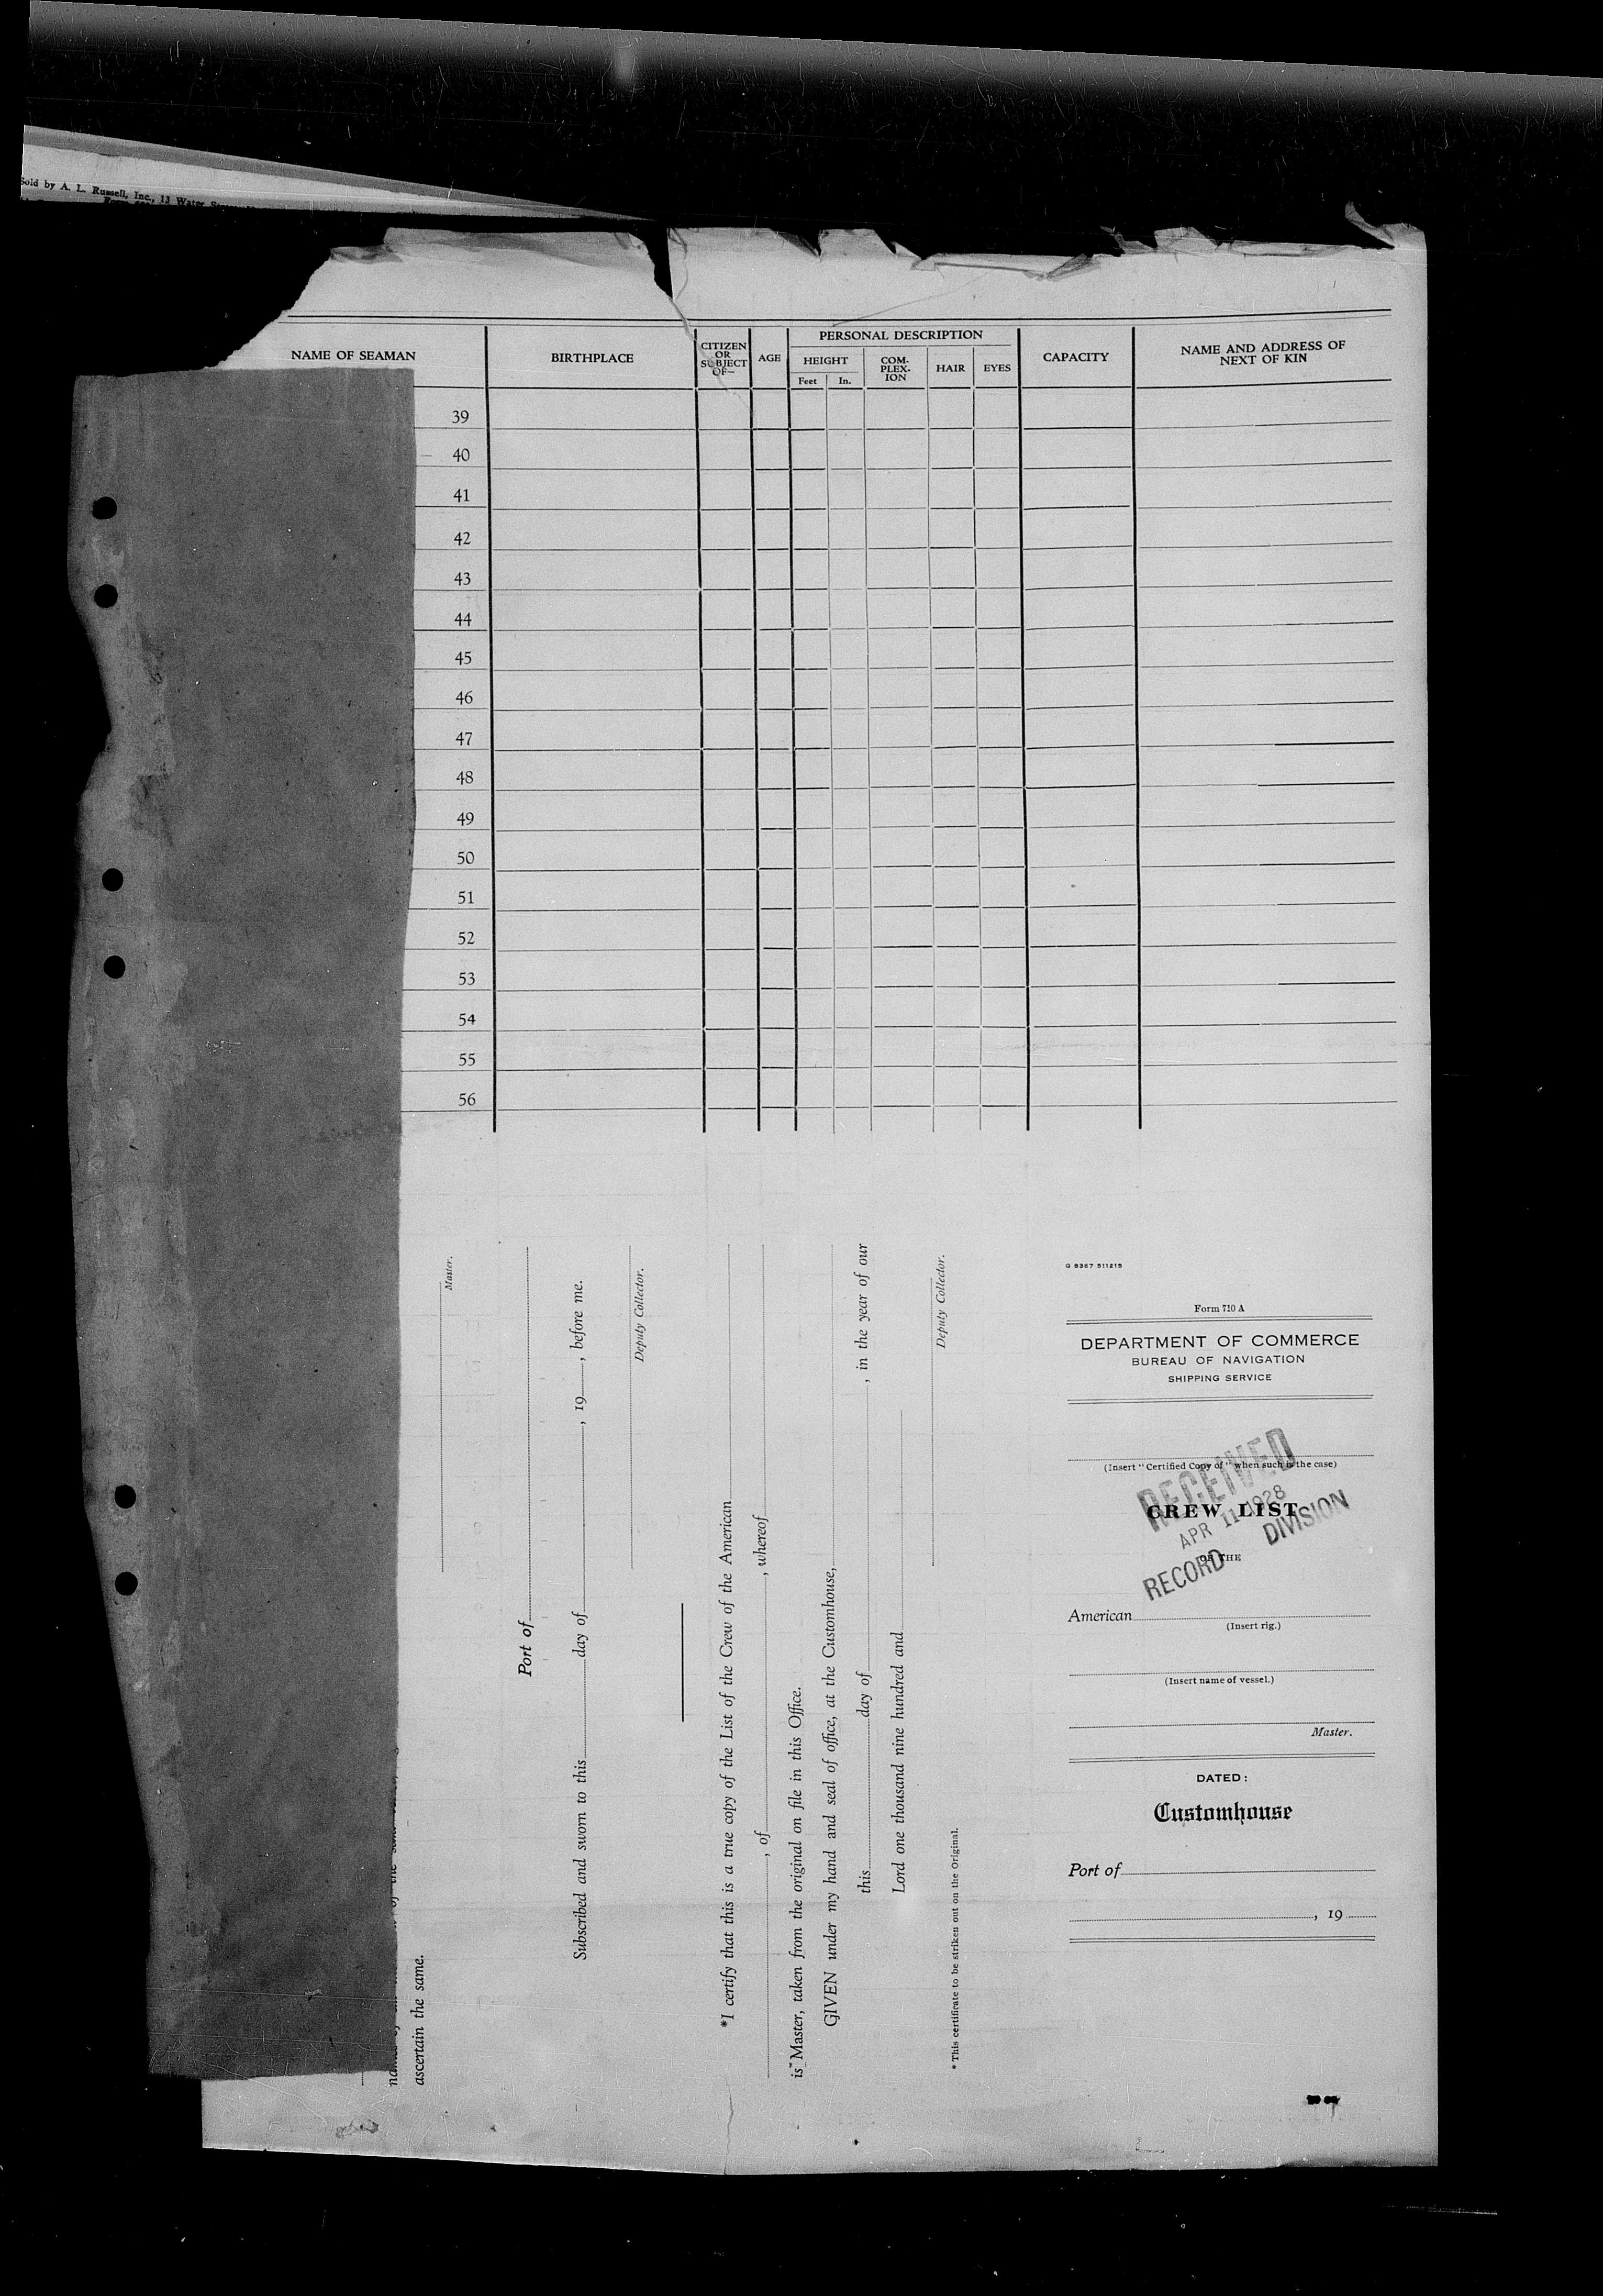 Sold by A. L. Russell, Inc., 13 Water
NAME OF SEAMAN
BIRTHPLACE
CITIZEN OR SUBJECT OF—
AGE
PERSONAL DESCRIPTION
HEIGHT
Feet
In.
COM-PLEX-ION
HAIR
EYES
CAPACITY
NAME AND ADDRESS OF NEXT OF KIN
39
40
41
42
43
44
45
46
47
48
49
50
51
52
53
54
55
56
ascertain the same.
Master.
Port of
Subscribed and sworn to this day of , 19 , before me.
Deputy Collector.
*I certify that this is a true copy of the List of the Crew of the American
, of , whereof
is Master, taken from the original on file in this Office.
GIVEN under my hand and seal of office, at the Customhouse,
this day of , in the year of our
Lord one thousand nine hundred and
Deputy Collector.
* This certificate to be striken out on the Original.
G 8367 511215
Form 710 A
DEPARTMENT OF COMMERCE
BUREAU OF NAVIGATION
SHIPPING SERVICE
(Insert "Certified Copy of" when such is the case)
RECEIVED
CREW LIST
APR 11 1928
RECORD DIVISION
OF THE
American
(Insert rig.)
(Insert name of vessel.)
Master.
DATED:
Customhouse
Port of
, 19